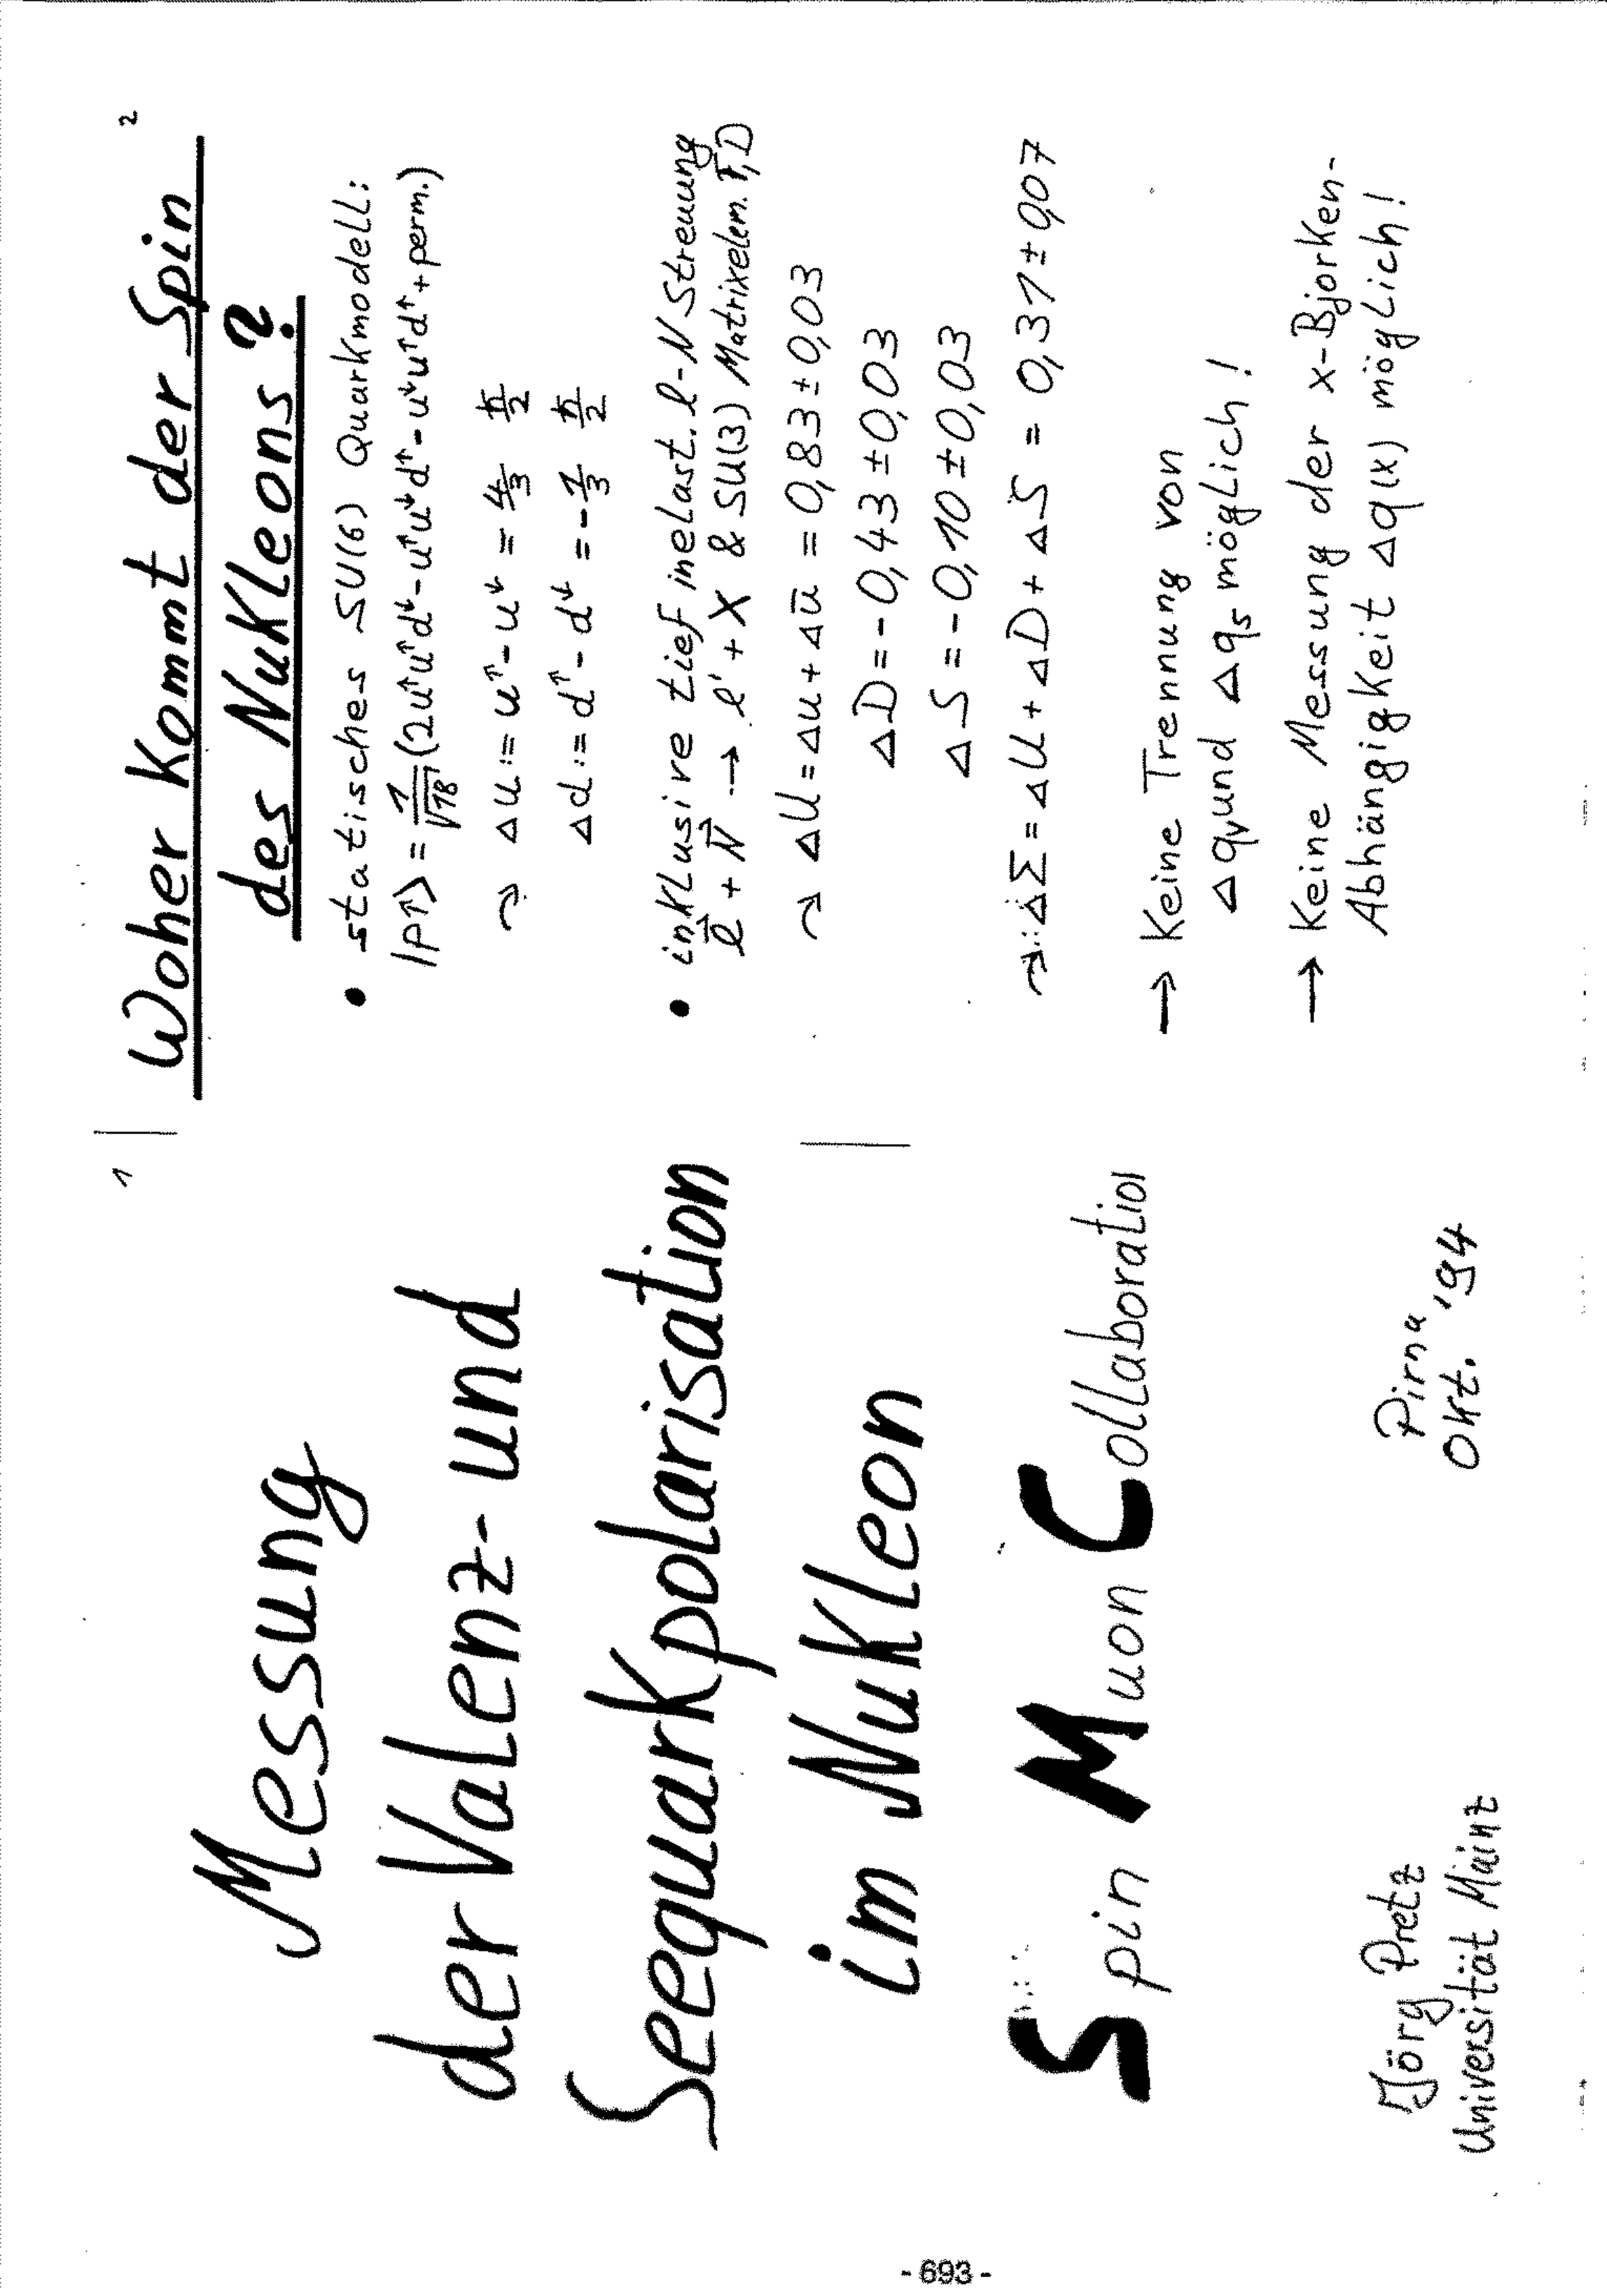 1
Messung
der Valenz- und
Seequarkpolarisation
im Nukleon
Spin Muon Collaboration
Jörg Pretz
Universität Mainz
Pirna
Okt. '94
2
Woher kommt der Spin
des Nukleons?
• statisches SU(6) Quarkmodell:
|P↑> = 1/√18 (2u↑u↑d↓ - u↑u↓d↑ - u↓u↑d↑ + perm.)
↝ Δu := u↑ - u↓ = 4/3 ħ/2
Δd := d↑ - d↓ = -1/3 ħ/2
• inklusive tief inelast. l-N Streuung
l⃗ + N⃗ → l' + X & SU(3) Matrixelem. F,D
↝ ΔU = Δu + Δū = 0,83 ± 0,03
ΔD = -0,43 ± 0,03
ΔS = -0,10 ± 0,03
↝ ΔΣ = ΔU + ΔD + ΔS = 0,31 ± 0,07
→ Keine Trennung von
Δqv und Δqs möglich!
→ Keine Messung der x-Bjorken-
Abhängigkeit Δq(x) möglich!
- 693 -